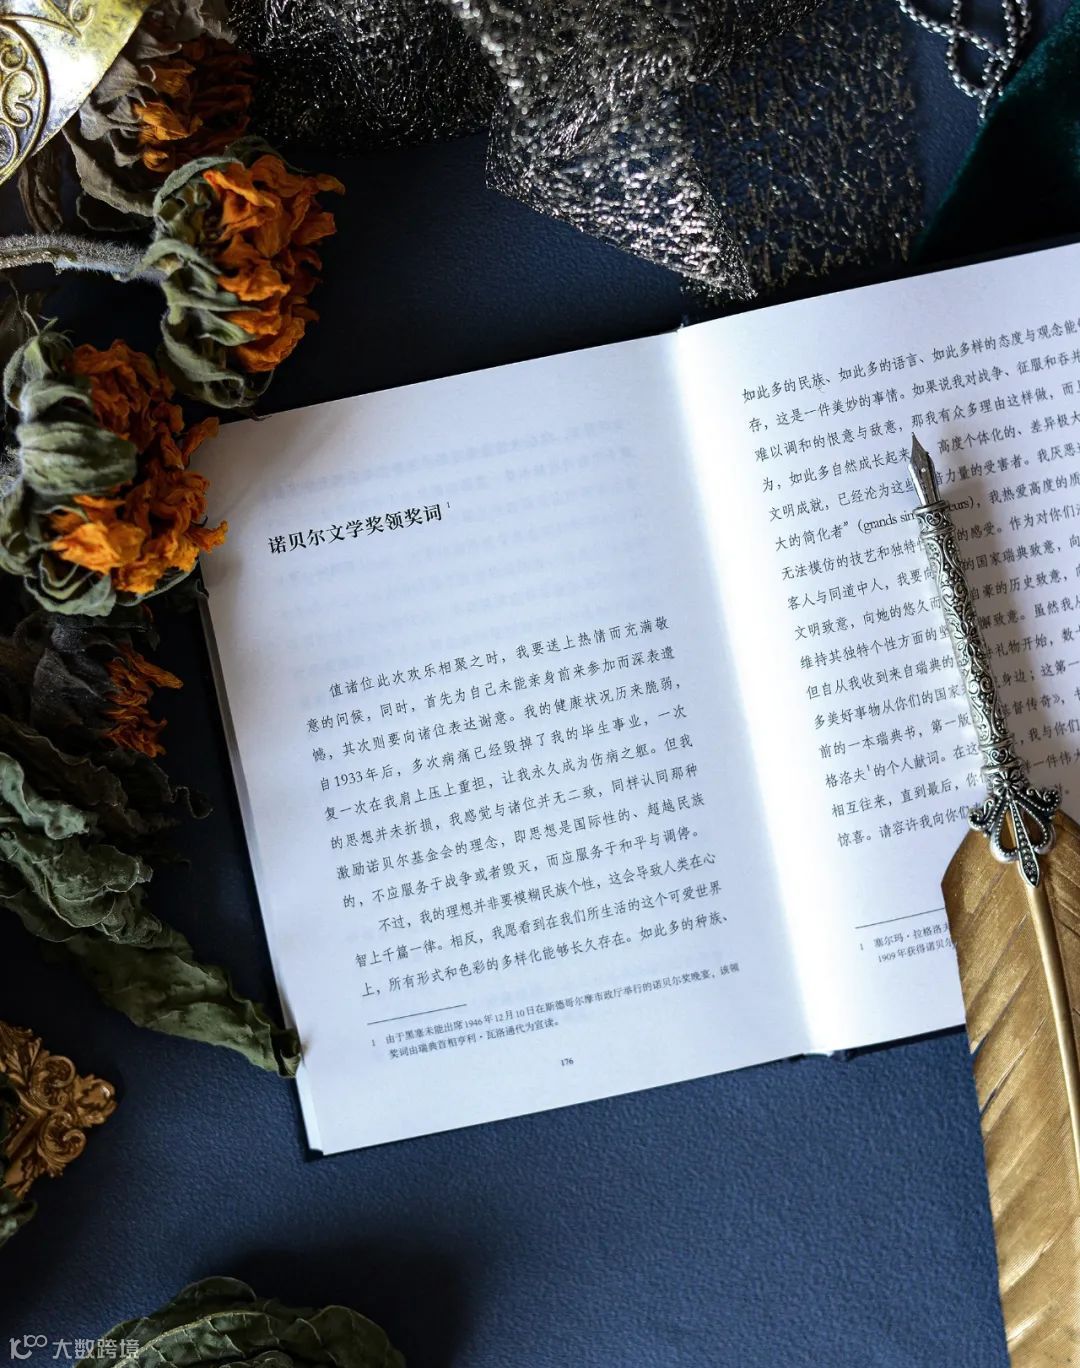 诺贝尔文学奖领奖词1
值诸位此次欢乐相聚之时，我要送上热情而充满敬
意的问候，同时，首先为自己未能亲身前来参加而深表遗
憾，其次则要向诸位表达谢意。我的健康状况历来脆弱，
自1933年后，多次病痛已经毁掉了我的毕生事业，一次
复一次在我肩上压上重担，让我永久成为伤病之躯。但我
的思想并未折损，我感觉与诸位并无二致，同样认同那种
激励诺贝尔基金会的理念，即思想是国际性的、超越民族
的，不应服务于战争或者毁灭，而应服务于和平与调停。
不过，我的理想并非要模糊民族个性，这会导致人类在心
智上千篇一律。相反，我愿看到在我们所生活的这个可爱世界
上，所有形式和色彩的多样化能够长久存在。如此多的种族、
1 由于黑塞未能出席1946年12月10日在斯德哥尔摩市政厅举行的诺贝尔奖晚宴，该领
奖词由瑞典首相亨利·瓦洛通代为宣读。
176
如此多的民族、如此多的语言、如此多样的态度与观念能
存，这是一件美妙的事情。如果说我对战争、征服和吞并
难以调和的恨意与敌意，那我有众多理由这样做，而
为，如此多自然成长起来 高度个体化的、差异极大
文明成就，已经沦为这些 力量的受害者。我厌恶
大的简化者”（grands sim curs），我热爱高度的质
无法模仿的技艺和独特 的感受。作为对你们
客人与同道中人，我要向 的国家瑞典致意，向
文明致意，向她的悠久而 自豪的历史致意，
维持其独特个性方面的坚 懈致意。虽然我
但自从我收到来自瑞典的 件礼物开始，数
多美好事物从你们的国家 身边；这第一
前的一本瑞典书，第一版 基督传奇》，
格洛夫1的个人献词。在这 ，我与你们
相互往来，直到最后，你们 一件伟大
惊喜。请容许我向你们
1 塞尔玛·拉格洛夫
1909年获得诺贝尔
大数跨境